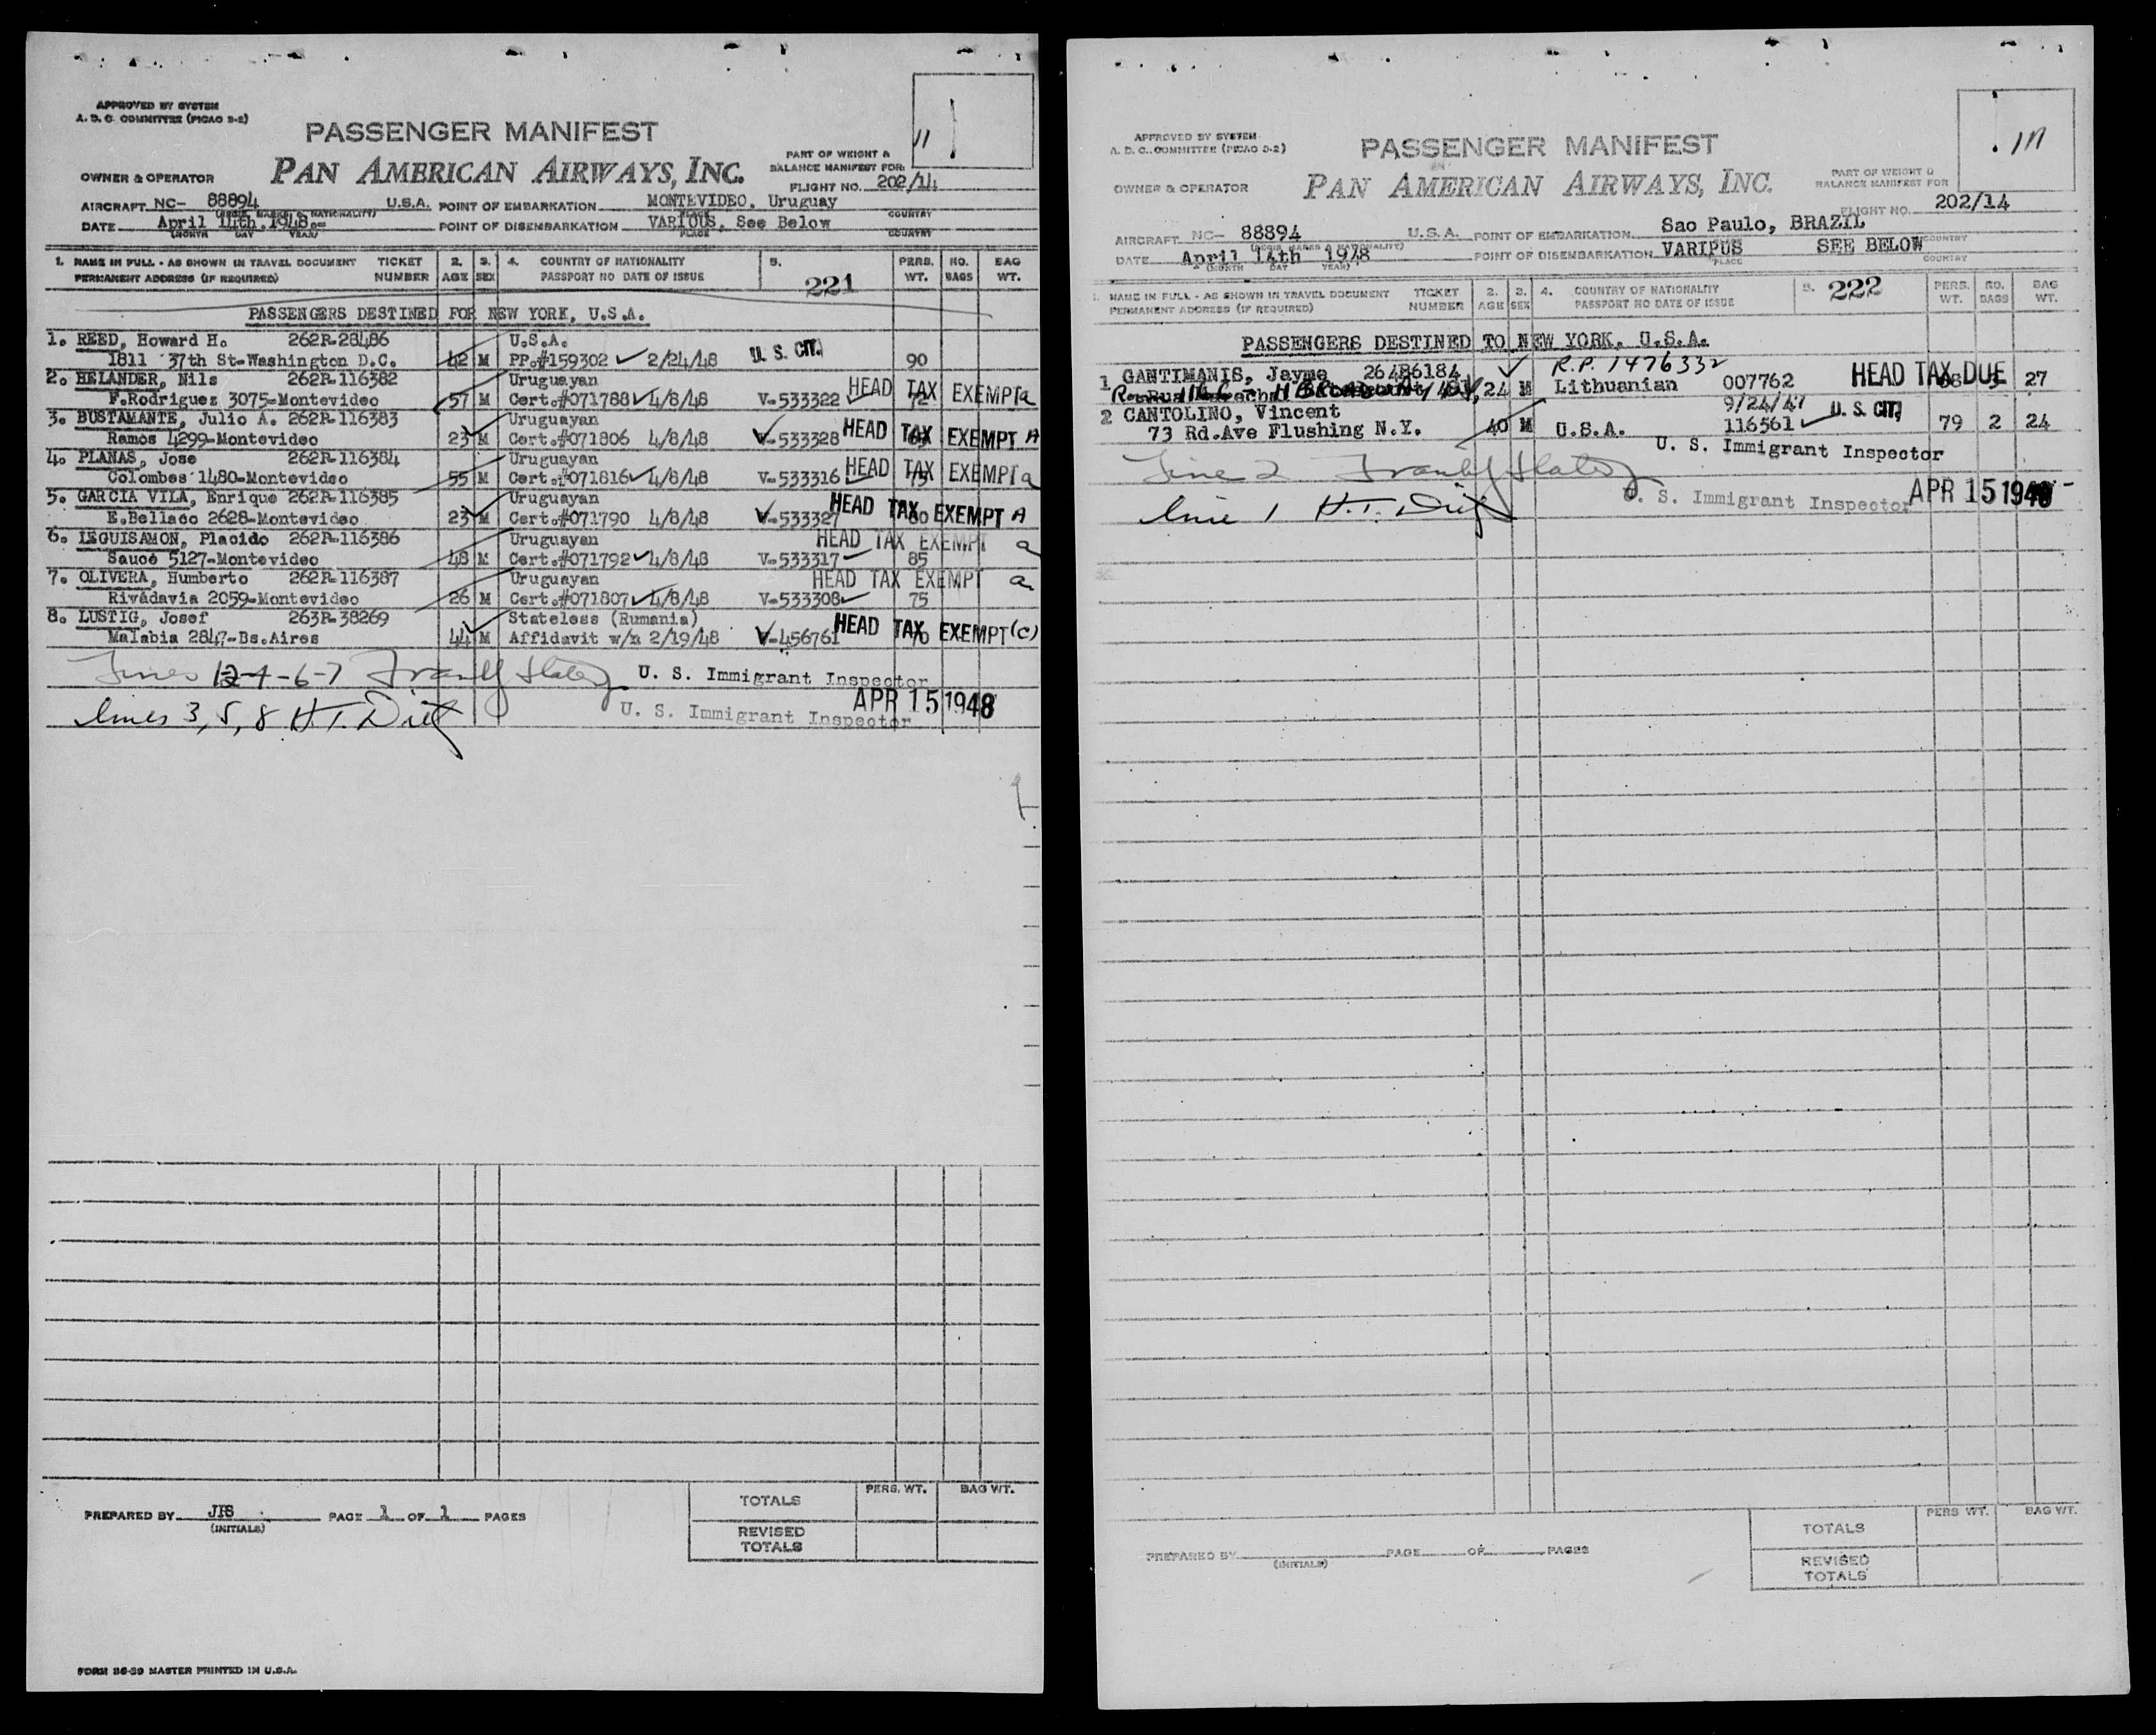 APPROVED BY SYSTEM
A. D. C. COMMITTEE (PICAO 2-2)
PASSENGER MANIFEST
PAN AMERICAN AIRWAYS, INC.
PART OF WEIGHT &
BALANCE MANIFEST FOR:
OWNER & OPERATOR
FLIGHT NO. 202/14
AIRCRAFT NC- 88894 U.S.A. POINT OF EMBARKATION MONTEVIDEO, Uruguay
DATE April 14th.1948 POINT OF DISEMBARKATION VARIOUS, See Below
(MONTH DAY YEAR) PLACE COUNTRY
1. NAME IN FULL - AS SHOWN IN TRAVEL DOCUMENT TICKET 2. 3. 4. COUNTRY OF NATIONALITY 5. PERS. NO. BAG
PERMANENT ADDRESS (IF REQUIRED) NUMBER AGE SEX PASSPORT NO DATE OF ISSUE 221 WT. BAGS WT.
PASSENGERS DESTINED FOR NEW YORK, U.S.A.
1. REED, Howard H. 262R-28486 U.S.A.
1811 37th St-Washington D.C. 42 M PP.#159302 2/24/48 U. S. CIT. 90
2. HELANDER, Nils 262R-116382 Uruguayan
F.Rodriguez 3075-Montevideo 57 M Cert.#071788 4/8/48 V-533322 HEAD TAX EXEMPT a
3. BUSTAMANTE, Julio A. 262R-116383 Uruguayan
Ramos 4299-Montevideo 23 M Cert.#071806 4/8/48 V-533328 HEAD TAX EXEMPT A
4. PLANAS, Jose 262R-116384 Uruguayan
Colombes 1480-Montevideo 55 M Cert.#071816 4/8/48 V-533316 HEAD TAX EXEMPT a
5. GARCIA VILA, Enrique 262R-116385 Uruguayan
E.Bellaco 2628-Montevideo 23 M Cert.#071790 4/8/48 V-533327 HEAD TAX EXEMPT A
6. LEGUISAMON, Placido 262R-116386 Uruguayan HEAD TAX EXEMPT a
Sauce 5127-Montevideo 48 M Cert.#071792 4/8/48 V-533317 85
7. OLIVERA, Humberto 262R-116387 Uruguayan HEAD TAX EXEMPT a
Rivadavia 2059-Montevideo 26 M Cert.#071807 4/8/48 V-533308 75
8. LUSTIG, Josef 263R-38269 Stateless (Rumania)
Malabia 2847-Bs.Aires 44 M Affidavit w/n 2/19/48 V-456761 HEAD TAX EXEMPT (c)
U. S. Immigrant Inspector
APR 15 1948
lines 3, 5, 8 H.T.
U. S. Immigrant Inspector
TOTALS PERS. WT. BAG WT.
PREPARED BY JBS PAGE 1 OF 1 PAGES
(INITIALS)
REVISED
TOTALS
FORM BG-39 MASTER PRINTED IN U.S.A.
APPROVED BY SYSTEM
A. D. C. COMMITTEE (PICAO 2-2)
PASSENGER MANIFEST
PAN AMERICAN AIRWAYS, INC.
PART OF WEIGHT &
BALANCE MANIFEST FOR
OWNER & OPERATOR
FLIGHT NO. 202/14
AIRCRAFT NC- 88894 U.S.A. POINT OF EMBARKATION Sao Paulo, BRAZIL
DATE April 14th 1948 POINT OF DISEMBARKATION VARIPUS SEE BELOW
(MONTH DAY YEAR) PLACE COUNTRY
1. NAME IN FULL - AS SHOWN IN TRAVEL DOCUMENT TICKET 2. 3. 4. COUNTRY OF NATIONALITY 5. 222 PERS. NO. BAG
PERMANENT ADDRESS (IF REQUIRED) NUMBER AGE SEX PASSPORT NO DATE OF ISSUE WT. BAGS WT.
PASSENGERS DESTINED TO NEW YORK, U.S.A.
R.P. 1476332
1 GANTIMANIS, Jayme 26486184
24 M Lithuanian 007762 HEAD TAX DUE 27
9/24/47
2 CANTOLINO, Vincent U. S. CIT.
73 Rd.Ave Flushing N.Y. 40 M U.S.A. 116561 79 2 24
U. S. Immigrant Inspector
Line 2
U. S. Immigrant Inspector APR 15 1948
line 1 H.T.
TOTALS PERS WT. BAG WT.
PREPARED BY PAGE OF PAGES
(INITIALS)
REVISED
TOTALS